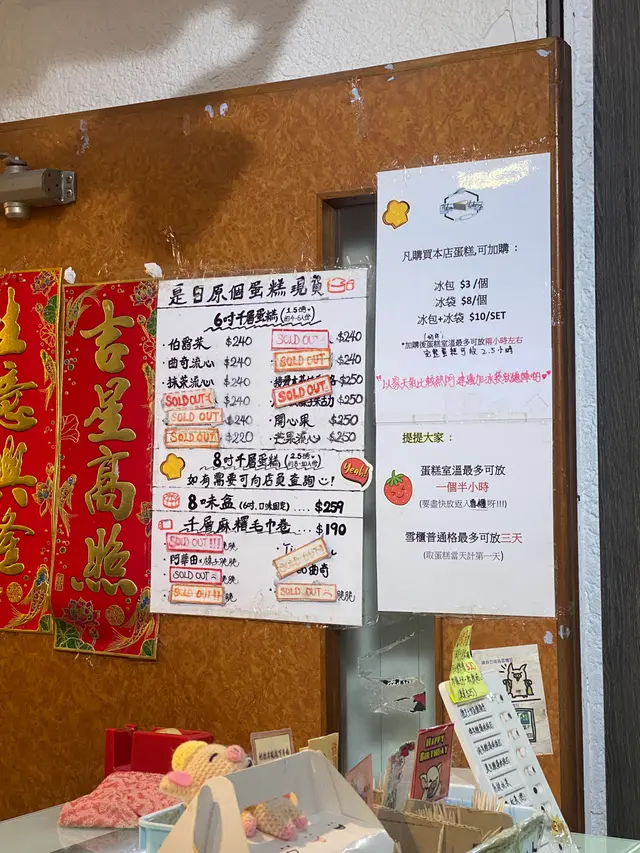 生意興隆
吉星高照
是日原個蛋糕現貨
6吋千層蛋糕
伯爵茶 $240
曲奇流心 $240
抹茶流心 $240
SOLD OUT $240
SOLD OUT $240
SOLD OUT $220
SOLD OUT $240
SOLD OUT $240
$250
SOLD OUT $250
開心果 $250
芒果流心 $250
8吋千層蛋糕
如有需要可向店員查詢心!
Yeah!
8味盒(6吋,口味固定)....$259
千層麻糬毛巾卷...$190
SOLD OUT!!! 脆脆
阿華田x榛子脆脆
SOLD OUT 脆脆
SOLD OUT!! 脆
SOLD OUT
曲奇
SOLD OUT 脆脆
凡購買本店蛋糕,可加購:
冰包 $3/個
冰袋 $8/個
冰包+冰袋 $10/SET
*加購後蛋糕室溫最多可放兩小時左右
"以家天氣比較熱阿,建議加冰袋就穩陣啲♥"
提提大家:
蛋糕室溫最多可放
一個半小時
(要盡快放返入雪櫃呀!!!)
雪櫃普通格最多可放三天
(取蛋糕當天計第一天)
HAPPY
BIRTHDAY